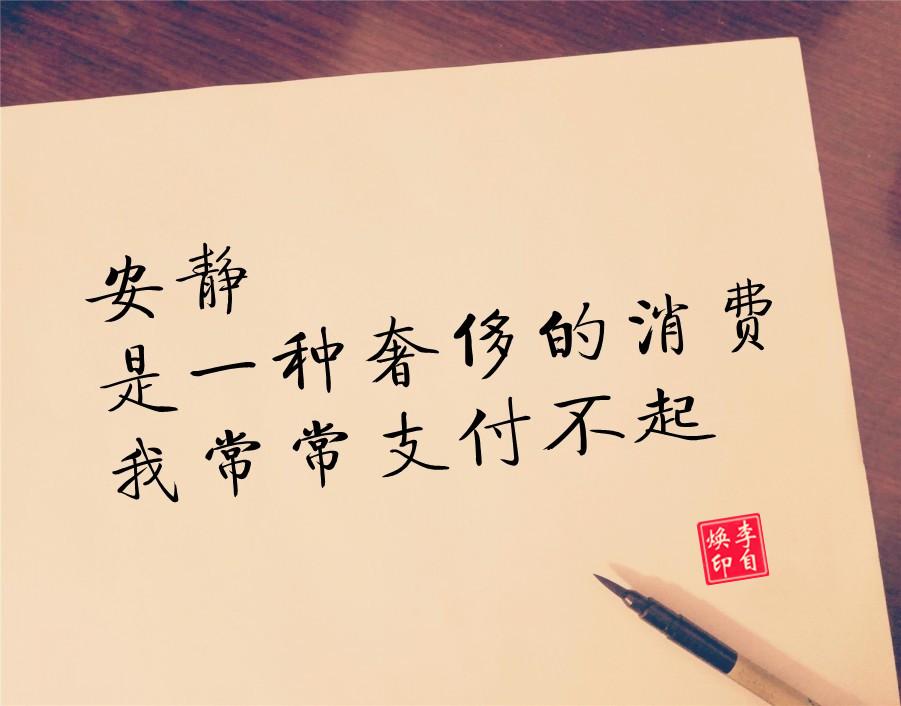 安静
是一种奢侈的消费
我常常支付不起
李自
焕印